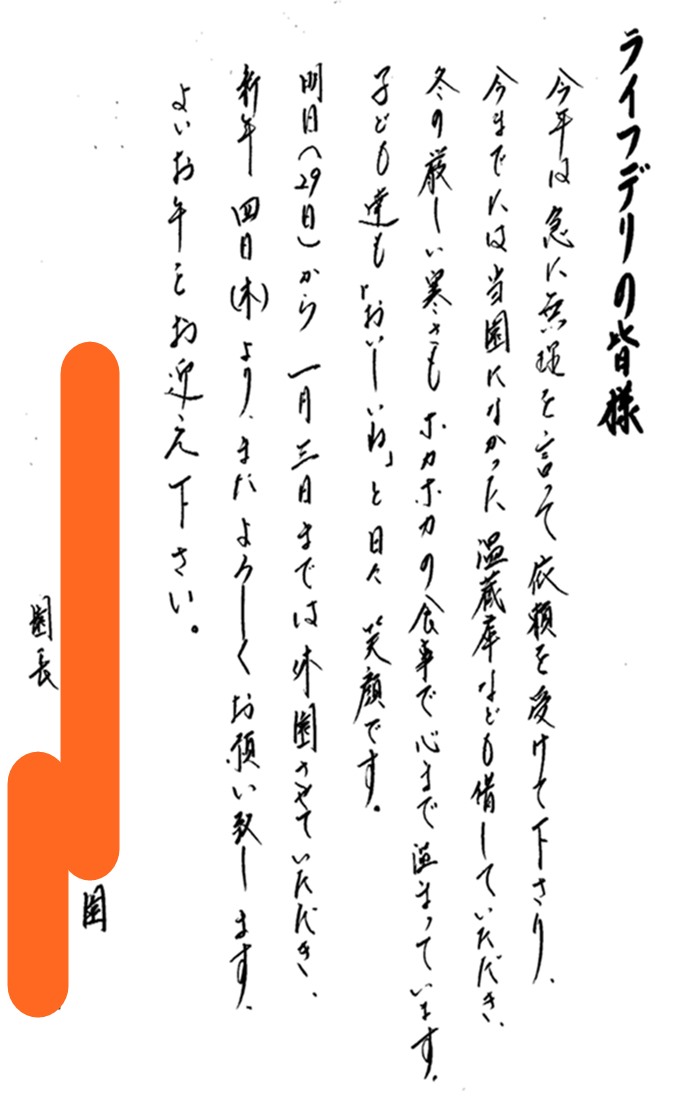 ライフデリの皆様
今年は急に無理を言って依頼を受けて下さり、
今までには当園になかった温蔵庫なども借していただき、
冬の厳しい寒さもホカホカの食事で心まで温まっています。
子ども達も「おいしいね」と日々笑顔です。
明日(29日)から一月三日までは休園させていただき、
新年四日(木)より、またよろしくお願い致します。
よいお年をお迎え下さい。
園
園長